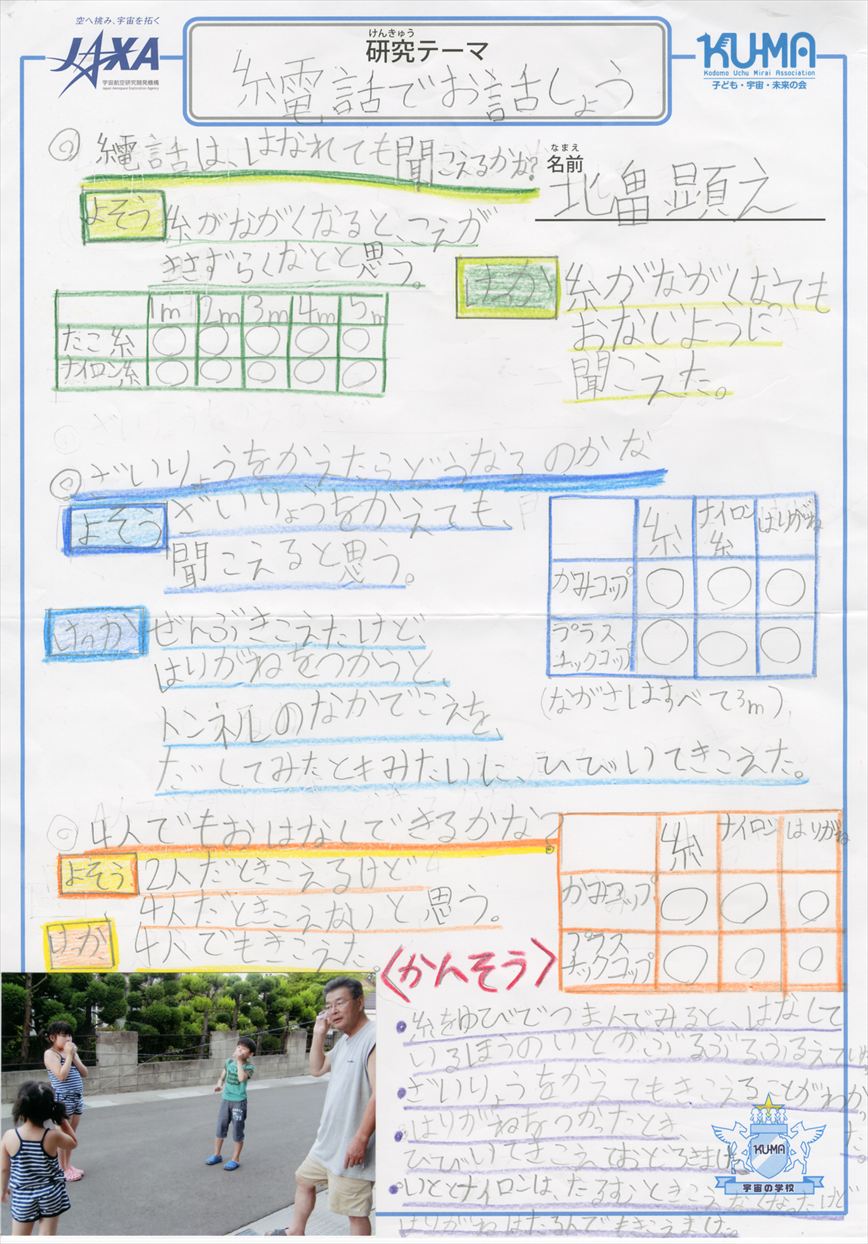 空へ挑み、宇宙を拓く
JAXA
宇宙航空研究開発機構
Japan Aerospace Exploration Agency
けんきゅう
研究テーマ
糸電話でお話しょう
KU-MA
Kodomo Uchu Mirai Association
子ども・宇宙・未来の会
◎ 糸電話は、はなれても聞こえるかな?
なまえ
名前
北畠 顕え
よそう 糸がながくなると、こえが
ききずらくなとと思う。
1m 2m 3m 4m 5m
たこ糸 ○ ○ ○ ○ ○
ナイロン糸 ○ ○ ○ ○ ○
けっか 糸がながくなっても
おなじように
聞こえた。
◎ ざいりょうをかえたらどうなるのかな
よそう ざいりょうをかえても、
聞こえると思う。
糸 ナイロン糸 はりがね
かみコップ ○ ○ ○
プラスチックコップ ○ ○ ○
(ながさはすべて3m)
けっか ぜんぶきこえたけど、
はりがねをつかうと、
トンネルのなかでこえを、
だしてみたときみたいに、ひびいてきこえた。
◎ 4人でもおはなしできるかな?
よそう 2人だときこえるけど
4人だときこえないと思う。
けっか 4人でもきこえた。
糸 ナイロン はりがね
かみコップ ○ ○ ○
プラスチックコップ ○ ○ ○
〈かんそう〉
・糸をゆびでつまんでみると、はなして
いるほうのいとがぶるぶるふるえてい
・ざいりょうをかえてもきこえることがわか
た
・はりがねをつかったとき、
ひびいてきこえておどろきま
・いととナイロンは、たるむときこえなくなったけど
はりがねはたるんでもきこえました。
KU-MA
宇宙の学校